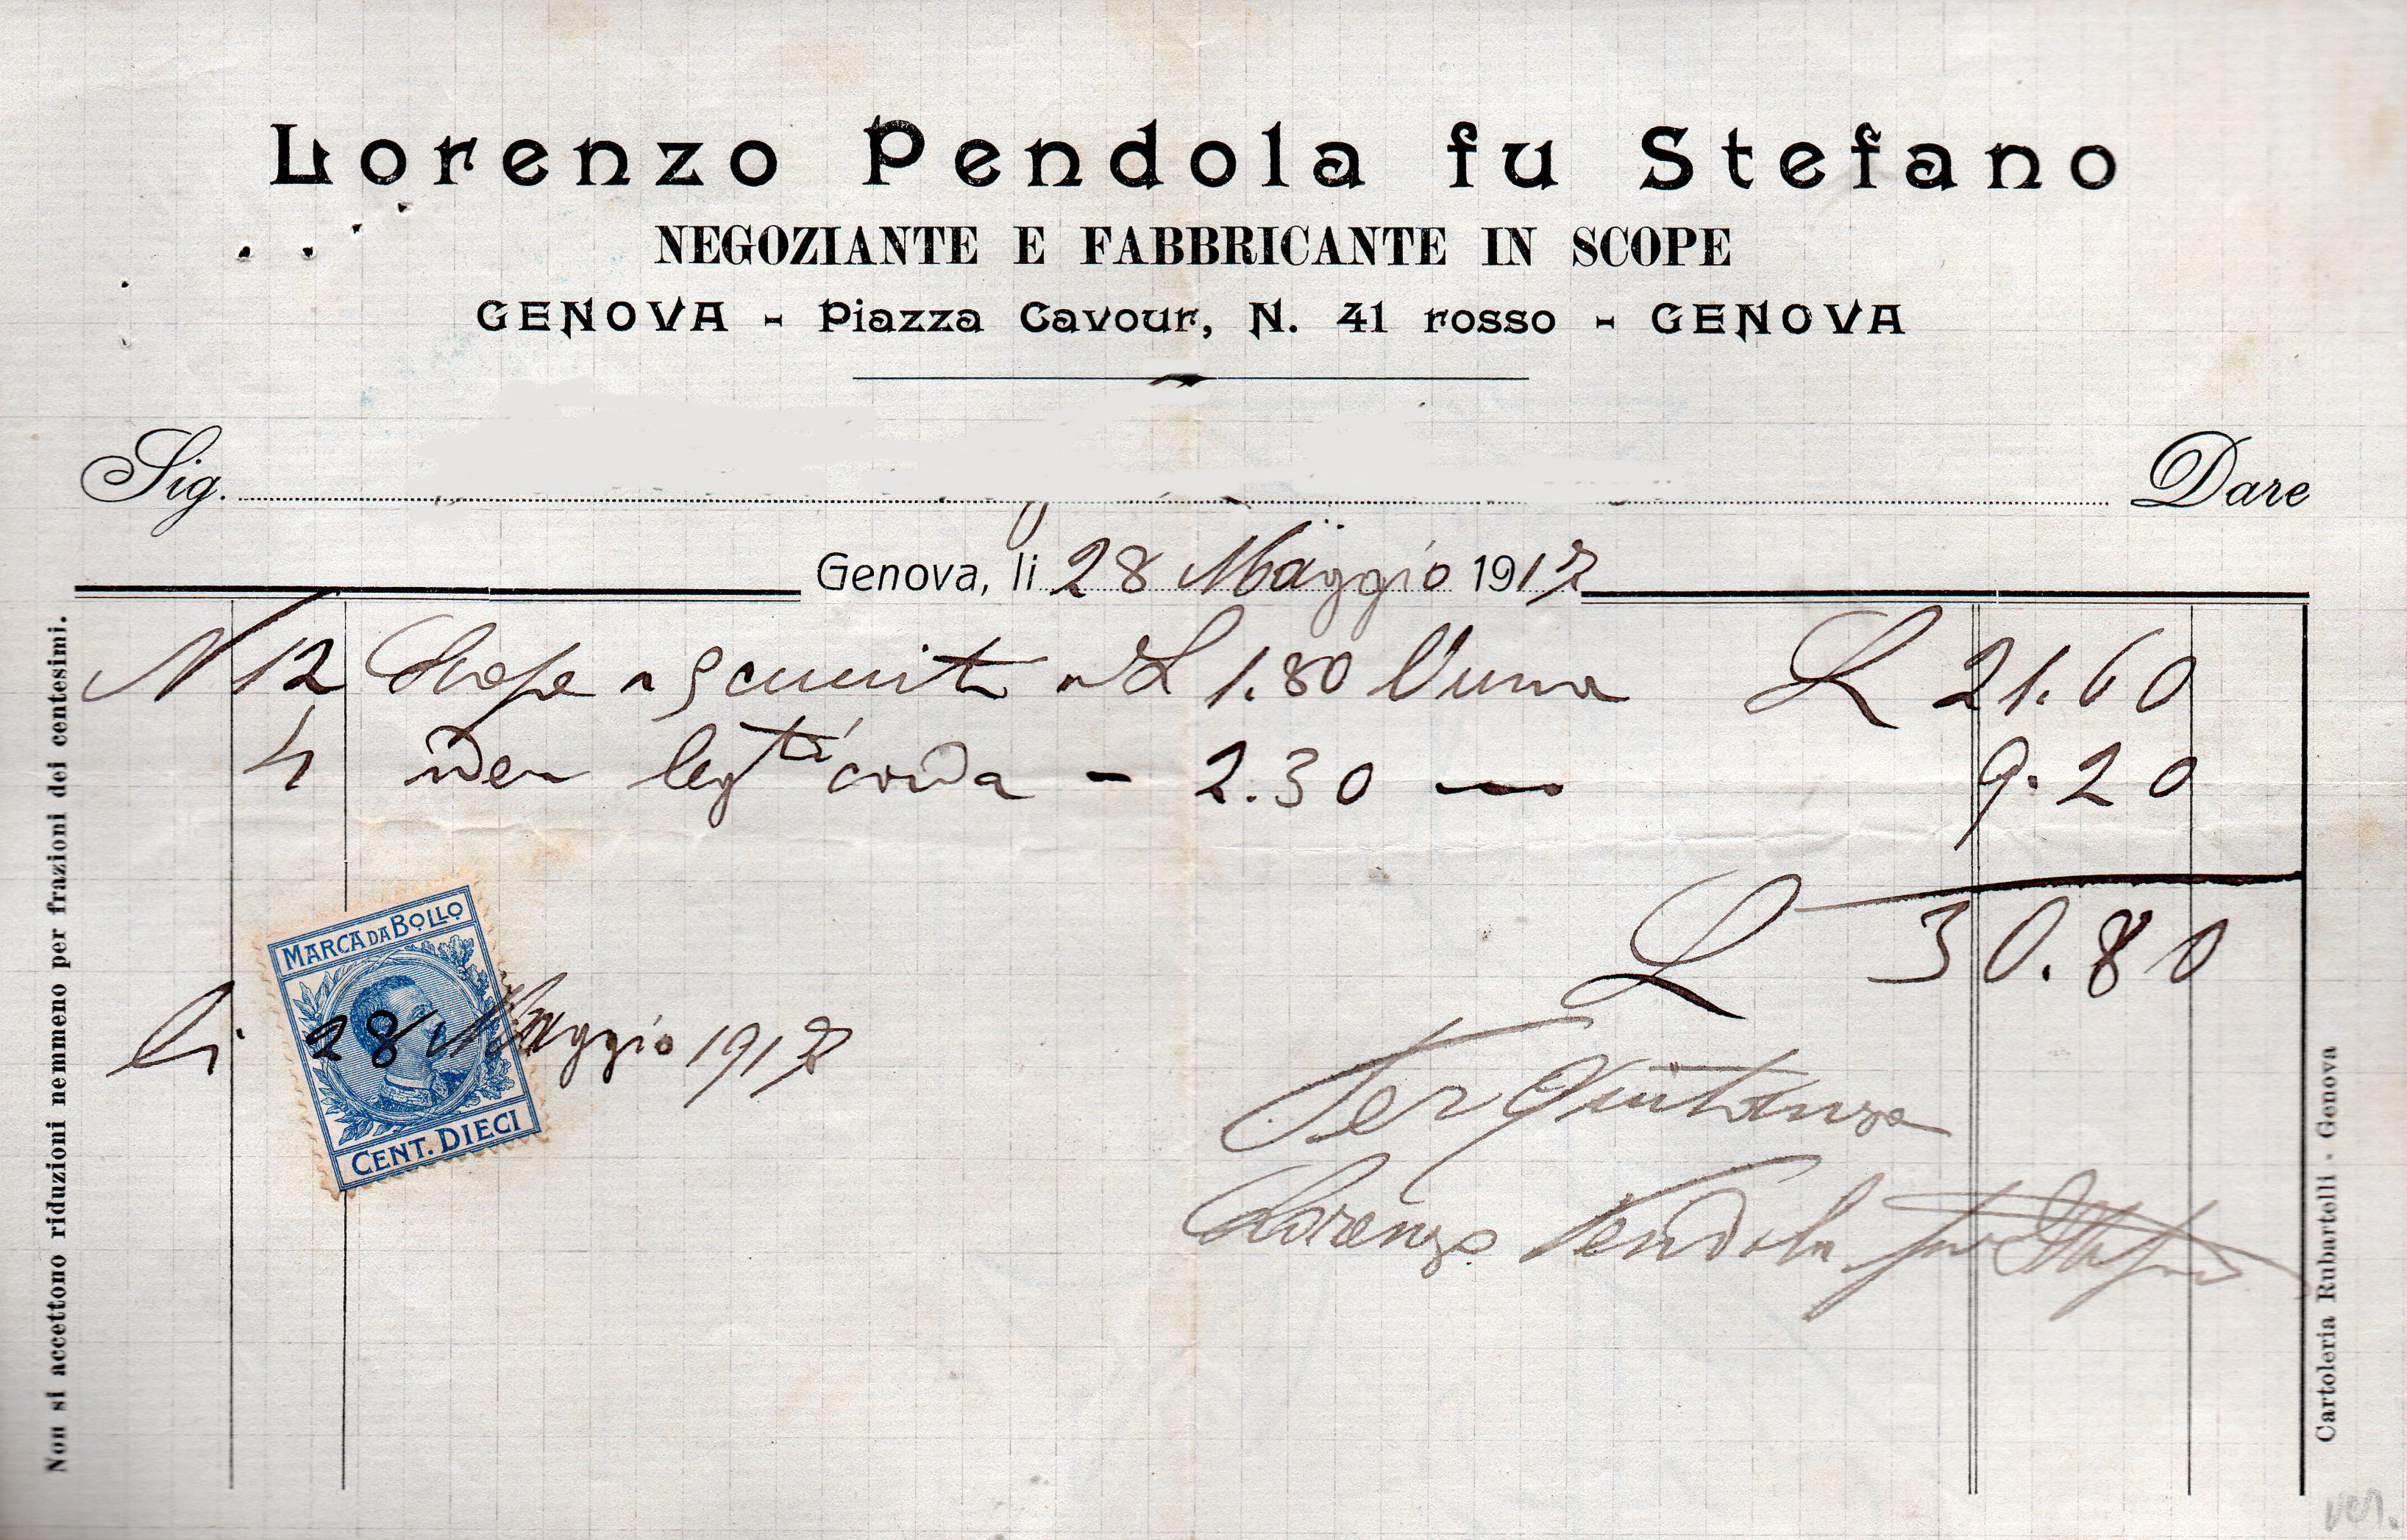 Lorenzo Pendola fu Stefano
NEGOZIANTE E FABBRICANTE IN SCOPE
GENOVA - Piazza Cavour, N. 41 rosso - GENOVA
Sig. Dare
Genova, li 28 Maggio 1917
N 12 Scope a L 1.80 l'una L 21.60
4 idem corda - 2.30 — 9.20
L 30.80
MARCA DA BOLLO
CENT. DIECI
li 28 Maggio 1917
Per Quietanza
Lorenzo Pendola fu Stefano
Non si accettono riduzioni nemmeno per frazioni dei centesimi.
Cartoleria Rubartelli - Genova